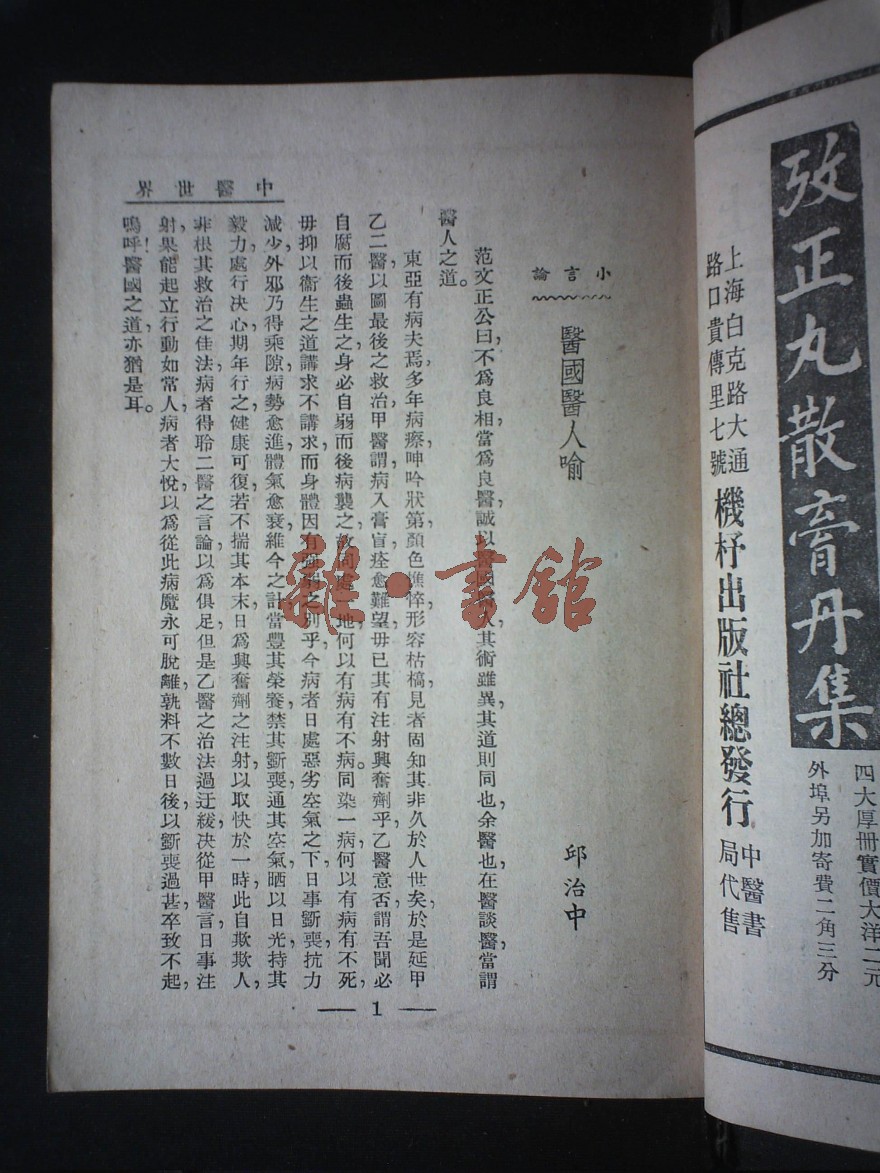 攷正丸散膏丹集
四大厚冊實價大洋二元
外埠另加寄費二角三分
上海白克路大通
路口貴傳里七號
機杼出版社總發行
中醫書
局代售
中醫世界
小言論
醫國醫人喻 邱治中
范文正公曰，不爲良相當爲良醫，誠以醫國醫人其術雖異，其道則同也，余醫也，在醫談醫，當謂
醫人之道。
東亞有病夫焉，多年病瘵，呻吟牀第，顏色憔悴，形容枯槁，見者固知其非久於人世矣，於是延甲
乙二醫，以圖最後之救治，甲醫謂病入膏肓，痊愈難望，毋已其有注射興奮劑乎，乙醫意否，謂吾聞必
自腐而後蟲生之，身必自弱而後病襲之，故同處一地，何以有病有不病。同染一病，何以有病有不死，
毋抑以衞生之道，講求不講求，而身體因有強弱之別乎，今病者日處惡劣空氣之下，日事斵喪，抗力
減少，外邪乃得乘隙，病勢愈進，體氣愈衰，維今之計，當豐其榮養，禁其斵喪，通其空氣，晒以日光，持其
毅力，處行決心，期年行之，健康可復，若不揣其本末，日爲興奮劑之注射，以取快於一時，此自欺欺人，
非根其救治之佳法，病者得聆二醫之言論，以爲俱足，但是乙醫之治法，過迂緩，決從甲醫言，日事注
射，果能起立行動如常人，病者大悅，以爲從此病魔永可脫離，孰料不數日後，以斵喪過甚，卒致不起，
嗚呼！醫國之道，亦猶是耳。
— 1 —
雜·書館